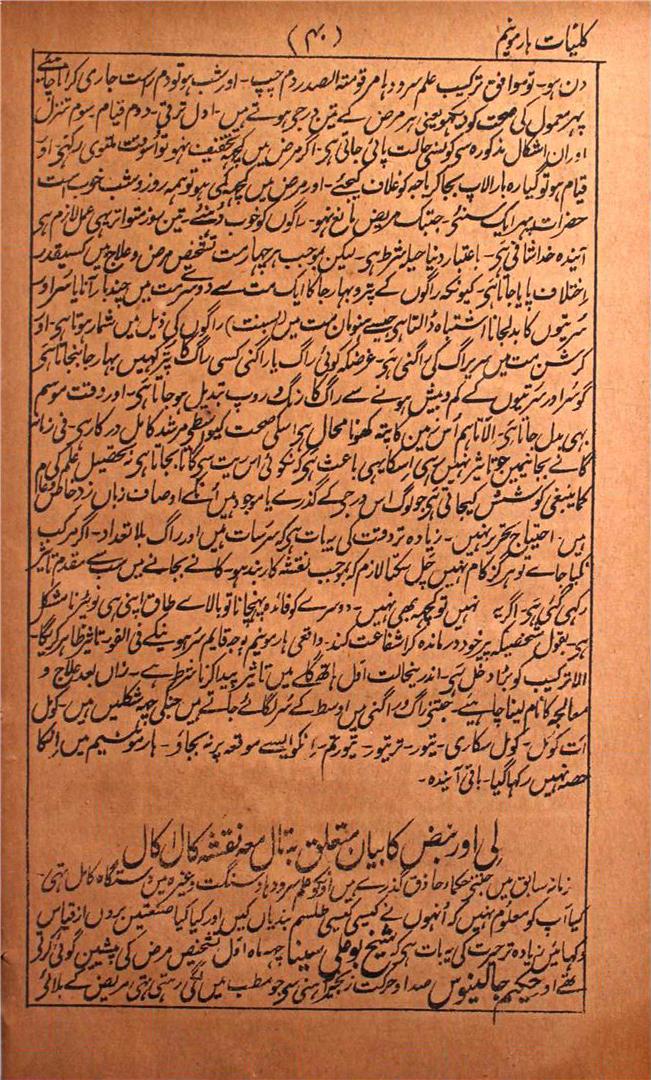 کلیات ہارمونیم (۴۰)
دن ہو۔ تو موافق ترکیب علم سرودہا مرقومۃ الصدر دم چپ۔ اور شب ہو تو دم راست جاری کرانا چاہئے
پہر معمول کی صحت کو دیکھو یعنی ہر مرض کے تین درجی ہوتے ہیں۔ اول ترقی۔ دوم قیام۔ سوم تنزل
اور ان اشکال مذکورہ سی کونسی حالت پائی جاتی ہی۔ اگر مرض میں کچھ تخفیف نہو تو اسوقت ملتوی رکہی اور
قیام ہو تو گیارہ بار الاپ بجا کر باجہ کو غلاف کیجئے۔ اور مرض میں کچھ کمی ہو تو ہمہ روز و شب خوب است
حضرات پہر ایک سنئی۔ جبتک مریض مانع نہو۔ راگوں کو خوب دُہنئے۔ تین روز متواتر یہی عمل لازم ہی
آیندہ خدا شافی ہی۔ باعتبار دنیا حیلہ شرط ہی۔ لیکن بموجب ہر چہار مت تشخیص مرض و علاج میں کسیقدر
اختلاف پایا جاتا ہی۔ کیونکہ راگوں کے پتر و بہارجا کا ایک مت سے دوسرے مت میں چند بار آنا یا سُر اور
سُرتیوں کا بدلجانا اشتباہ ڈالتا ہی جیسے ہنومان مت میں (بسنت) راگوں کی ذیل میں شمار ہوتا ہی۔ اور
کرشن مت میں سریراگ کی راگنی ہی۔ غرضکہ کوئی راگ یا راگنی کسی راگ کا پتر کہیں بہارجا بنجاتا ہی
گو سُر اور سُرتیوں کے کم و بیش ہونے سے راگ کا رنگ و روپ تبدیل ہو جاتا ہی۔ اور وقت موسم
بہی بدل جاتا ہی۔ الّا تاہم اُس زمین کا پتہ کھونا محال ہی اسکی صحت کیواسطی مرشد کامل درکار ہی۔ فی زمانہ
گانے بجانیمیں جو تاثیر نہیں رہی اسکا یہی باعث ہی کہ نکوئی اس ریت پر گاتا بجاتا ہی نہ تحصیل علم کی
کماینبغی کوشش کیجاتی ہی جو لوگ اس درجی کے گذرے یا موجود ہیں اُنکے اوصاف زباں زد خاص و عام
ہیں۔ احتیاج تحریر نہیں۔ زیادہ تر دقت کی یہ بات ہی کہ سُر سات ہیں اور راگ بلا تعداد۔ اگر مرکب
کیا جاے تو ہرگز کام نہیں چل سکتا لازم کہ بموجب نقشہ کاربند ہو۔ گانے بجانے میں سب سے مقدم تاثیر
رکہی گئی ہی۔ اگر یہ نہیں تو کچھ بھی نہیں۔ دوسرے کو فائدہ پہنچانا تو بالاے طاق اپنی ہی توقیر نا مشکل
ہی۔ بقول شخصیکہ پیر خود درماندہ کرا شفاعت کند۔ واقعی ہارمونیم بوجہ قایم سُر ہونیکے فی الفور تاثیر ظاہر کریگا۔
الا ترکیب کو بڑا دخل ہی۔ اندرینحالت اول ہاتھ گلے میں تاثیر پیدا کرنا شرط ہے۔ زاں بعد علاج و
معالجہ کا نام لینا چاہیے۔ جتنی راگ و راگنی میں اوسط کے سُر لگائے جاتے ہیں جنکی چھ شکلیں ہیں۔ کومل
ات کومل۔ کومل سکاری۔ تیور۔ تر تیور۔ تیور تم۔ انکو ایسے موقعہ پر نہ بجاؤ۔ ہارمونیم میں انکا
حصہ نہیں رکہا گیا۔ باقی آیندہ۔
لی اور نبض کا بیان متعلق بہ تال معہ نقشہ کال اکال
زمانہ سابق میں جتنے حکماء حاذق گذرے ہیں اونکو علم سرودہا و سنگت وغیرہ میں دستگاہ کامل تہی۔
کیا آپ کو معلوم نہیں کہ اُنہوں نے کیسی کیسی طلسم بندیاں کیں اور کیا کیا صنعتیں بروں از قیاس
دکہائیں زیادہ تر حیرت کی یہ بات ہی کہ شیخ بو علی سینا چہ ماہ اول تشخیص مرض کی پیشین گوئی کرتی
تھے اور حکیم جالینوس صدا و حرکت زنجیر آہنی سی جو مطب میں لٹکی رہتی تہی مریض کے ہلانی